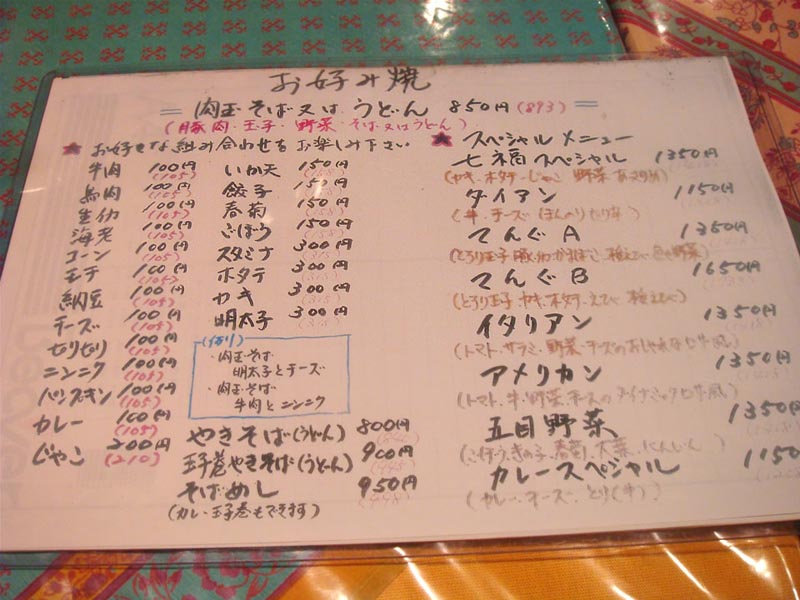 お好み焼
肉玉そば又はうどん 850円 (893)
(豚肉・玉子・野菜・そば又はうどん)
★ お好きな組み合わせをお楽しみ下さい
牛肉 100円 (105)
鳥肉 100円 (105)
生イカ 100円 (105)
海老 100円 (105)
コーン 100円 (105)
モチ 100円 (105)
納豆 100円 (105)
チーズ 100円 (105)
ピリピリ 100円 (105)
ニンニク 100円 (105)
パンスキン 100円 (105)
カレー 100円 (105)
じゃこ 200円 (210)
いか天 150円 (158)
餃子 150円 (158)
春菊 150円 (158)
ごぼう 150円 (158)
スタミナ 300円 (315)
ホタテ 300円 (315)
カキ 300円 (315)
明太子 300円 (315)
・肉玉そば
明太子とチーズ
・肉玉そば
牛肉とニンニク
やきそば(うどん) 800円
玉子巻やきそば(うどん) 900円
そばめし 950円
(カレー、玉子巻もできます)
★ スペシャル メニュー
七福スペシャル 1350円
(カキ・ホタテ・じゃこ 野菜
ダイアン 1150円
(牛・チーズ ほんのり
てんぐA 1350円
(とろり玉子
てんぐB 1650円
(とろり玉子・カキ・ホタテ・えび・
イタリアン 1350円
(トマト・サラミ・野菜・チーズのおしゃれなピザ風)
アメリカン 1350円
(トマト・牛・野菜・チーズのダイナミックなピザ風)
五目野菜 1350円
(ごぼう・きの子・春菊・大葉・にんじん)
カレースペシャル 1150
(カレー・チーズ・とり(牛))